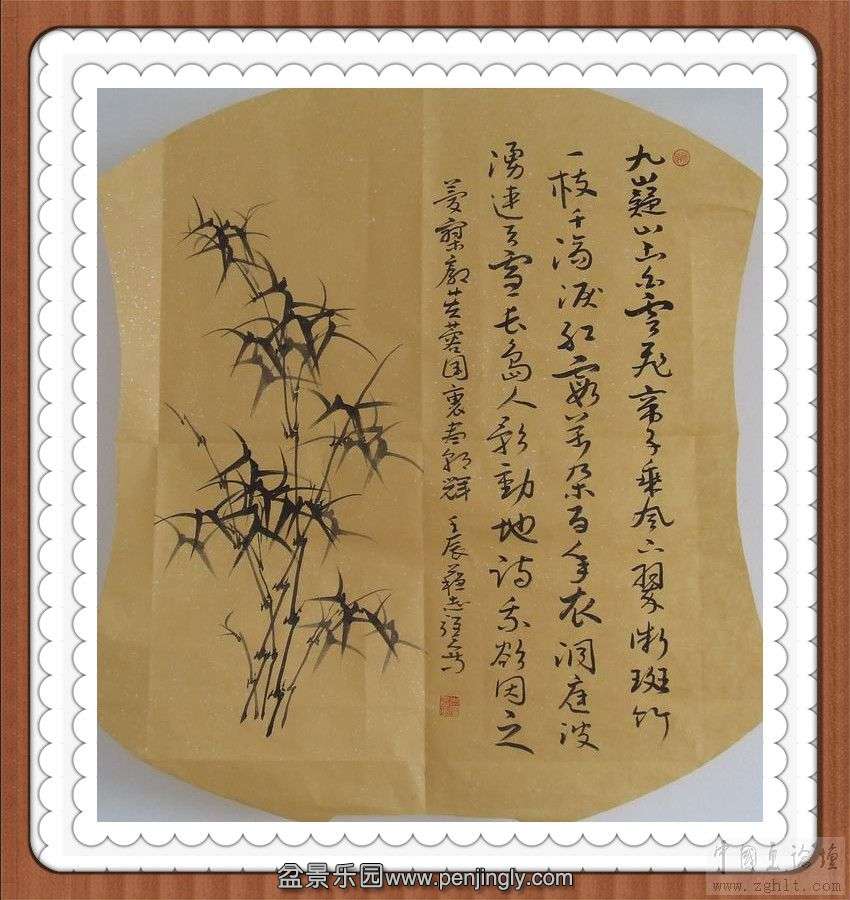 九嶷山上白雲飛帝子乘風下翠微斑竹
一枝千滴淚紅霞萬朵百重衣洞庭波
湧連天雪長島人歌動地詩我欲因之
夢寥廓芙蓉国裏盡朝輝 壬辰
盆景乐园www.penjingly.com
www.zghlt.com